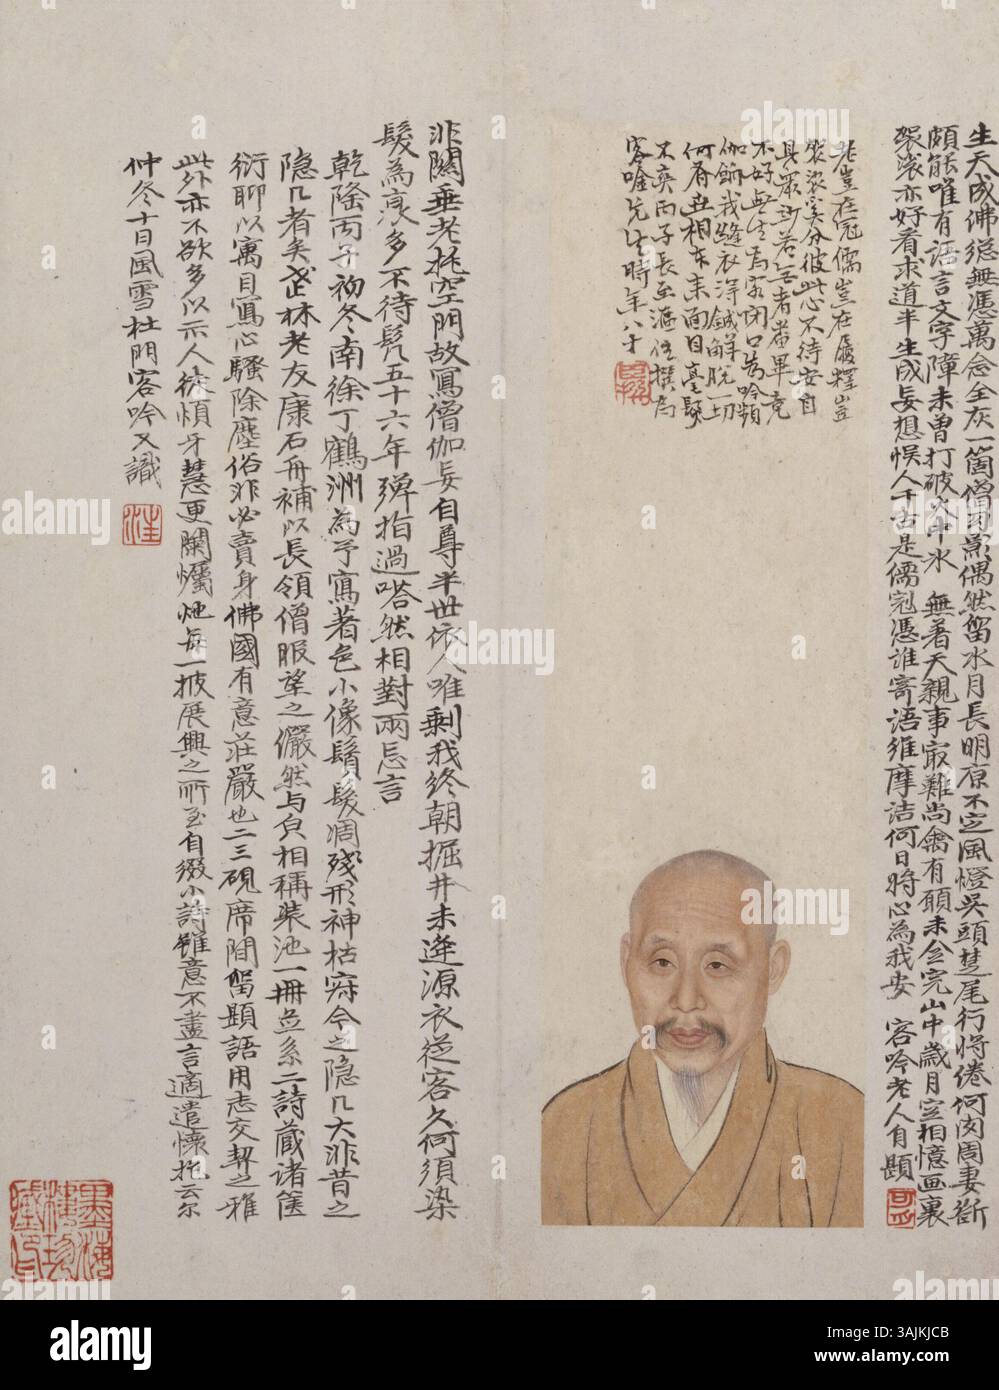 生天成佛總無憑萬念全灰一箇僧影偶然留水月長明原不定風燈吳頭楚尾行將倦何肉周妻斷
頗能唯有語言文字障未曾打破火中氷 無著天親事最難尚禽有願未全完山中歲月空相憶画裏
袈裟亦好看求道半生成妄想悞人千古是儒冠憑誰寄語維摩詰何日將心為我安 客吟老人自題
老豈在冠儒豈在履釋豈
袈裟奚分彼此心不待安自
具眾妙若者畢竟
不好無為家閉口為吟頻
伽餉我縫衣浮鍼解脫一切
何有丑相本來面目毫髮
不爽丙子長至漚住撰為
客唫先生時年八十
非關垂老托空門故寫僧伽妄自尊半世依人唯剩我終朝掘井未逢源衣從客久何須染
髮為衰多不待髡五十六年彈指過嗒然相對兩忘言
乾隆丙子初冬南徐丁鶴洲為予寫著色小像鬚髮凋殘形神枯寂今之隱几大非昔之
隱几者矣武林老友康石舟補以長領僧服望之儼然与貟相稱裝池一冊並系二詩藏諸篋
衍聊以寓目寫心騷除塵俗非必賣身佛國有意莊嚴也二三硯席間留題語用志交契之雅
此外亦不欲多以示人徒煩牙慧更闌燭灺每一披展興之所至自綴小詩雖意不盡言適遣懷抱云尔
仲冬十日風雪杜門客吟又識
alamy
Image ID: 3AJKJCB
www.alamy.com